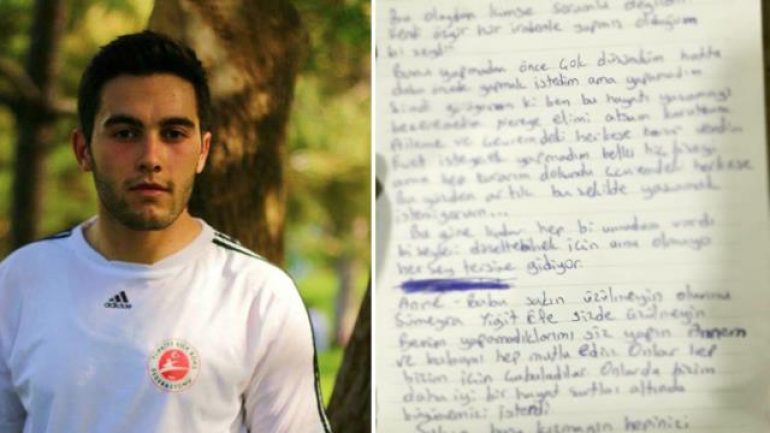 adidas
Bu olaydan kimse sorumlu değildir.
Kendi özgür hür irademle yapmış olduğum
bi şeydi
Bunu yapmadan önce çok düşündüm hatta
daha önce yapmak istedim ama yapamadım
görüyorum ki ben bu hayatı yaşamayı
beceremedim nereye elimi atsam kuruttum
Aileme ve çevremdeki herkese zarar verdim
Evet isteyerek yapmadım belki hiç bişeyi
ama hep zararım dokundu çevremdeki herkese
Bu yüzden artık bu şekilde yaşamak
istemiyorum...
Bu güne kadar hep bi umudum vardı
bişeyleri düzeltebilmek için ama olmuyo
her şey tersine gidiyor.
Anne - Baba sakın üzülmeyin olurmu
Sümeyra Yiğit Efe sizde üzülmeyin
Benim yapamadıklarımı siz yapın Annem
ve babamı hep mutlu edin Onlar hep
bizim için çabaladılar Onlarda bizim
daha iyi bir hayat şartları altında
büyümemizi istedi
kızmayın hepinizi